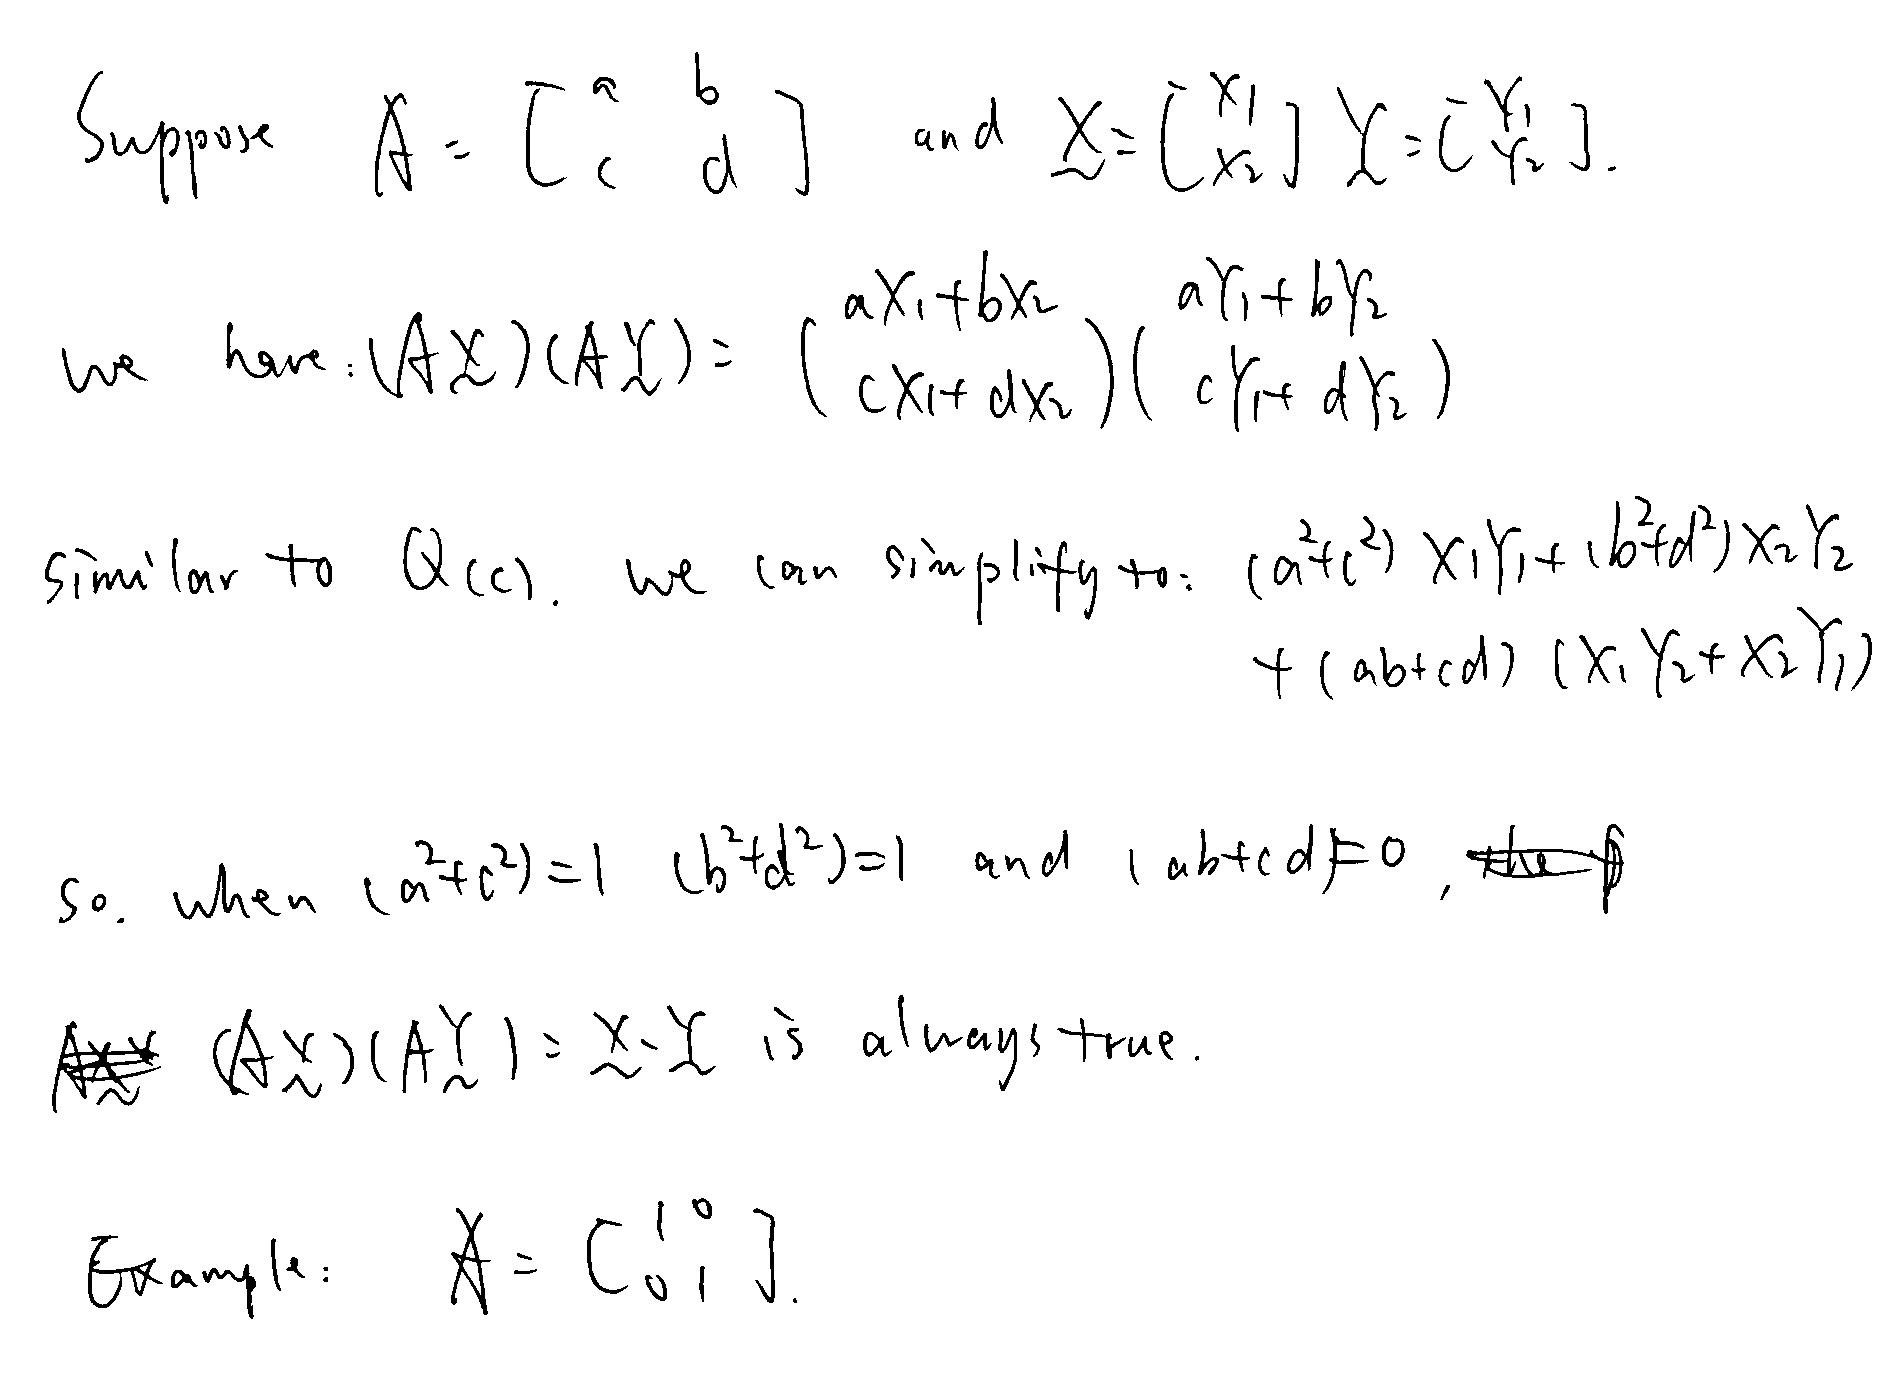 Suppose A = [a b c d] and X = [X1 X2] Y = [Y1 Y2].
we have: (AX)(AY) = (aX1+bX2 cX1+dX2)(aY1+bY2 cY1+dY2)
similar to Q(c). we can simplify to: (a²+c²) X1Y1+(b²+d²)X2Y2
+(ab+cd) (X1Y2+X2Y1)
so. when (a²+c²)=1 (b²+d²)=1 and (ab+cd)=0,
(AX)(AY) = X·Y is always true.
Example: A = [1 0 0 1].